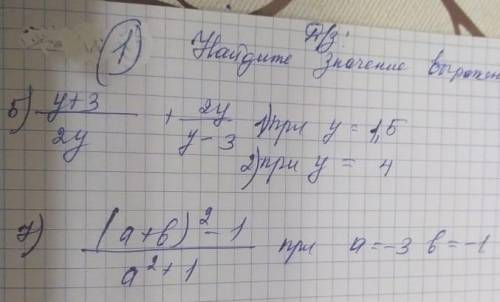 ① ДЗ:
Найдите значение выражен
5) (y+3)/(2y) + 2y/(y-3) 1) при y = 1,5
2) при y = 4
7) ((a+b)² - 1)/(a² + 1) при a = -3 b = -1